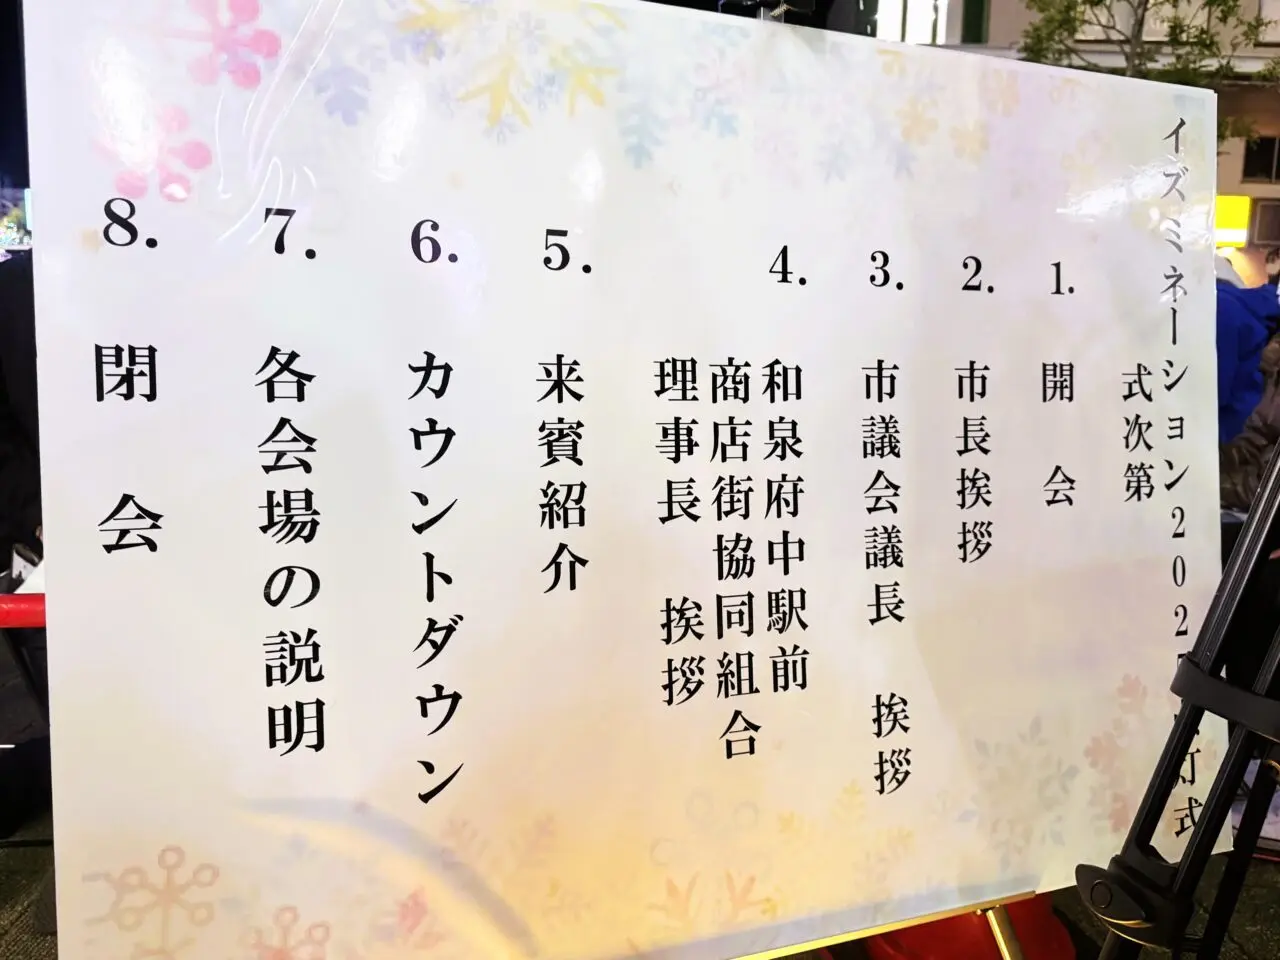 イズミネーション202 灯式
式次第
1. 開会
2. 市長挨拶
3. 市議会議長 挨拶
4. 和泉府中駅前
商店街協同組合
理事長 挨拶
5. 来賓紹介
6. カウントダウン
7. 各会場の説明
8. 閉会